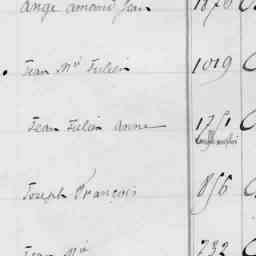 ange amand Jean 1870
Jean Mie Julien 1019
Jean Julien anne 1751
Joseph François 856
Jean Mie 732